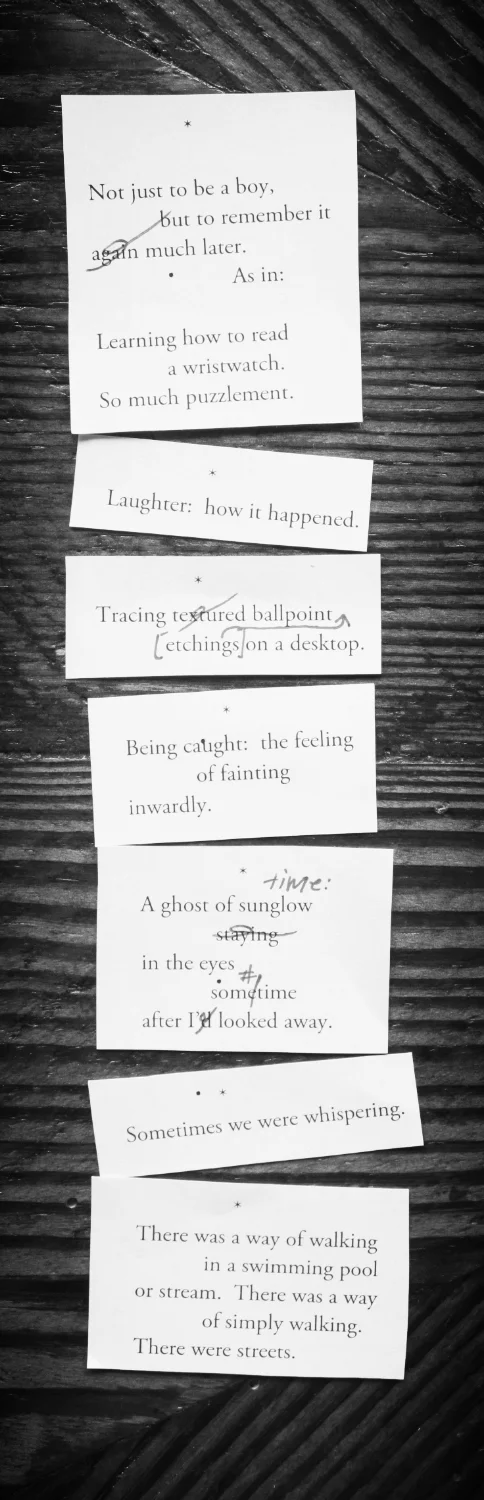 *
Not just to be a boy,
but to remember it
again much later.
As in:
Learning how to read
a wristwatch.
So much puzzlement.
*
Laughter: how it happened.
*
Tracing textured ballpoint
[etchings] on a desktop.
*
Being caught: the feeling
of fainting
inwardly.
*
time:
A ghost of sunglow
staying
in the eyes
#
sometime
after I'd looked away.
*
Sometimes we were whispering.
*
There was a way of walking
in a swimming pool
or stream. There was a way
of simply walking.
There were streets.